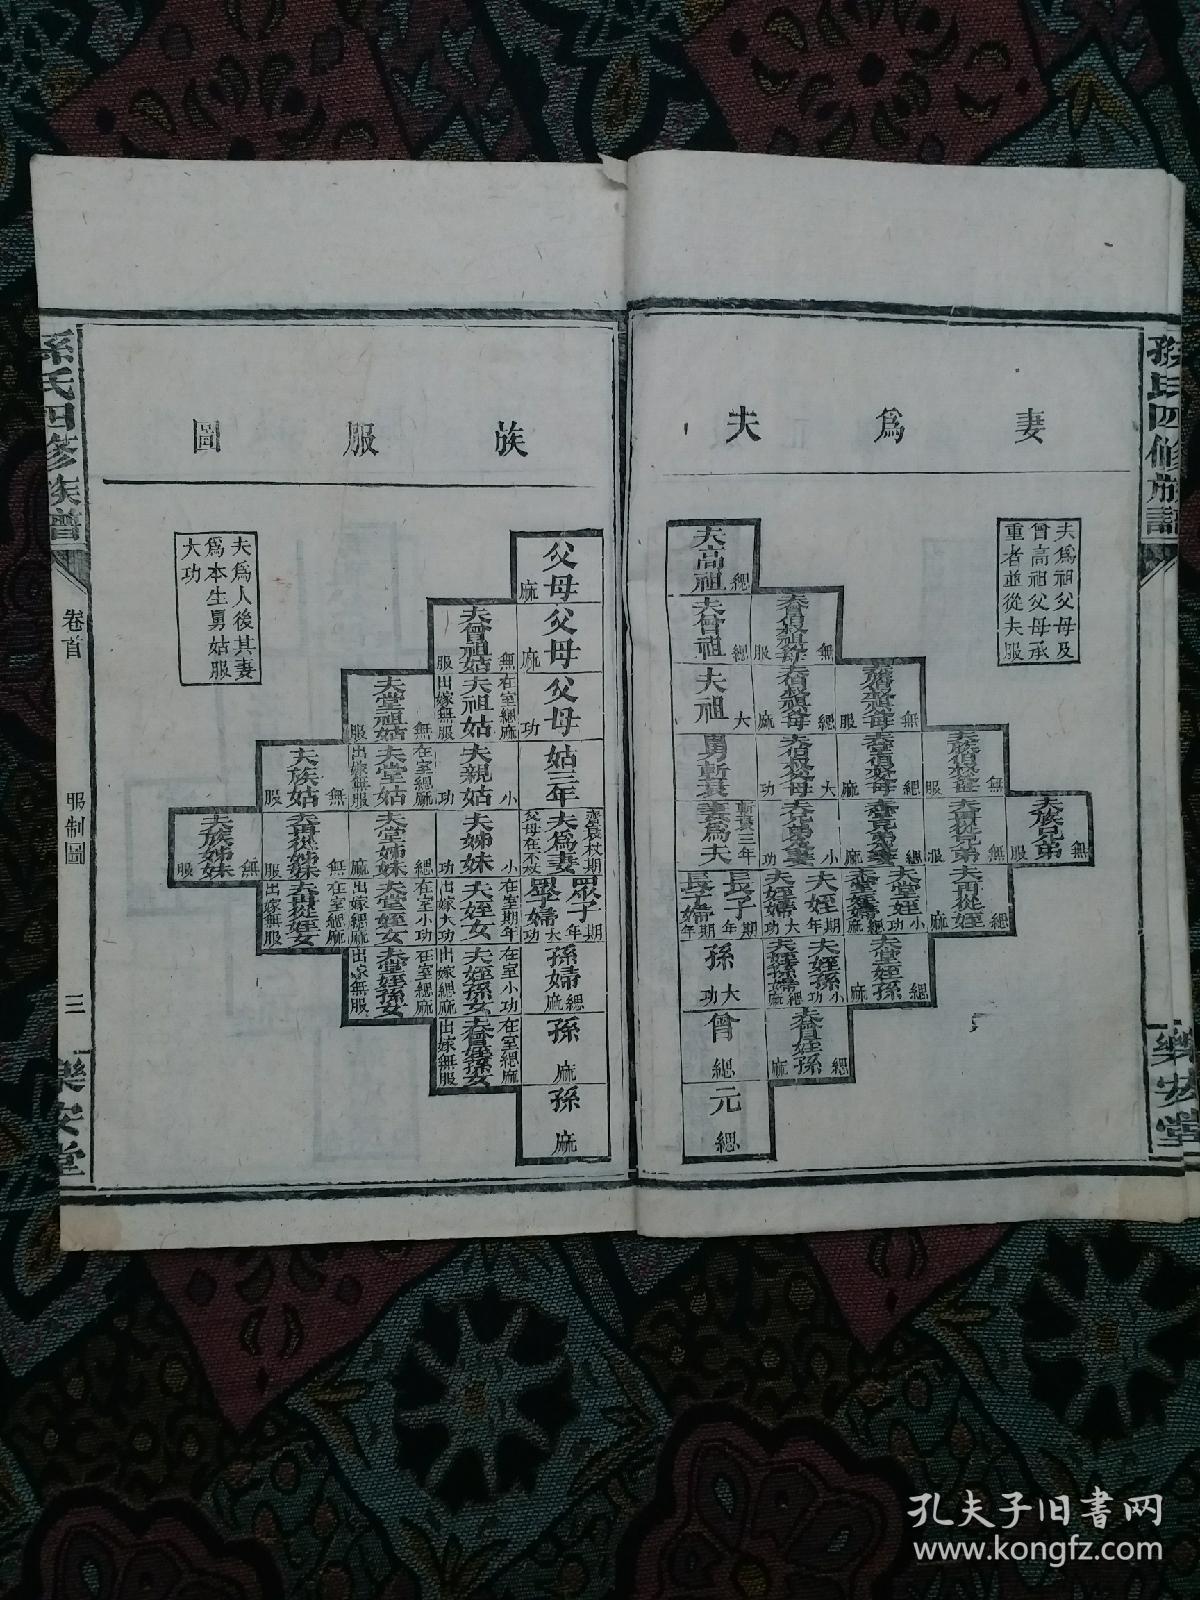 妻為夫
族服圖
夫為祖父母及
曾高祖父母承
重者並從夫服
夫族兄弟
無服
夫族伯叔父母
無服
夫再從兄弟
無服
夫再從姪
緦麻
無服
緦麻
夫堂姪
小功
夫堂姪婦
緦麻
夫堂姪孫
緦麻
無服
夫伯叔祖父母
緦麻
夫伯叔父母
大功
夫兄弟及妻
小功
夫姪
期年
夫姪婦
大功
夫姪孫
小功
夫姪孫婦
緦麻
夫曾姪孫
緦麻
夫高祖
緦
夫曾祖
緦
夫祖
大
舅斬衰
妻為夫
斬衰三年
長子
期年
長子婦
期年
孫
大功
曾
緦
元
緦
父母
麻
父母
麻
父母
功
姑三年
夫為妻
齊衰杖期
父母在不杖
眾子
期年
眾子婦
大功
孫婦
緦麻
孫
麻
孫
麻
夫曾祖姑
無服
夫祖姑
在室緦麻
出嫁無服
夫親姑
小功
夫姊妹
小功
夫姪女
在室期年
出嫁大功
夫姪孫女
在室小功
出嫁緦麻
夫曾姪孫女
在室緦麻
出嫁無服
夫堂祖姑
無服
夫堂姑
在室緦麻
出嫁無服
夫堂姊妹
緦麻
夫堂姪女
在室小功
出嫁緦麻
夫堂姪孫女
在室緦麻
出嫁無服
夫族姑
無服
夫再從姊妹
無服
夫再從姪女
在室緦麻
出嫁無服
夫族姊妹
無服
夫為人後其妻
為本生舅姑服
大功
孫氏四修族譜
卷首
服制圖
三
樂安堂
孫氏四修族譜
樂安堂
孔夫子旧书网
www.kongfz.com